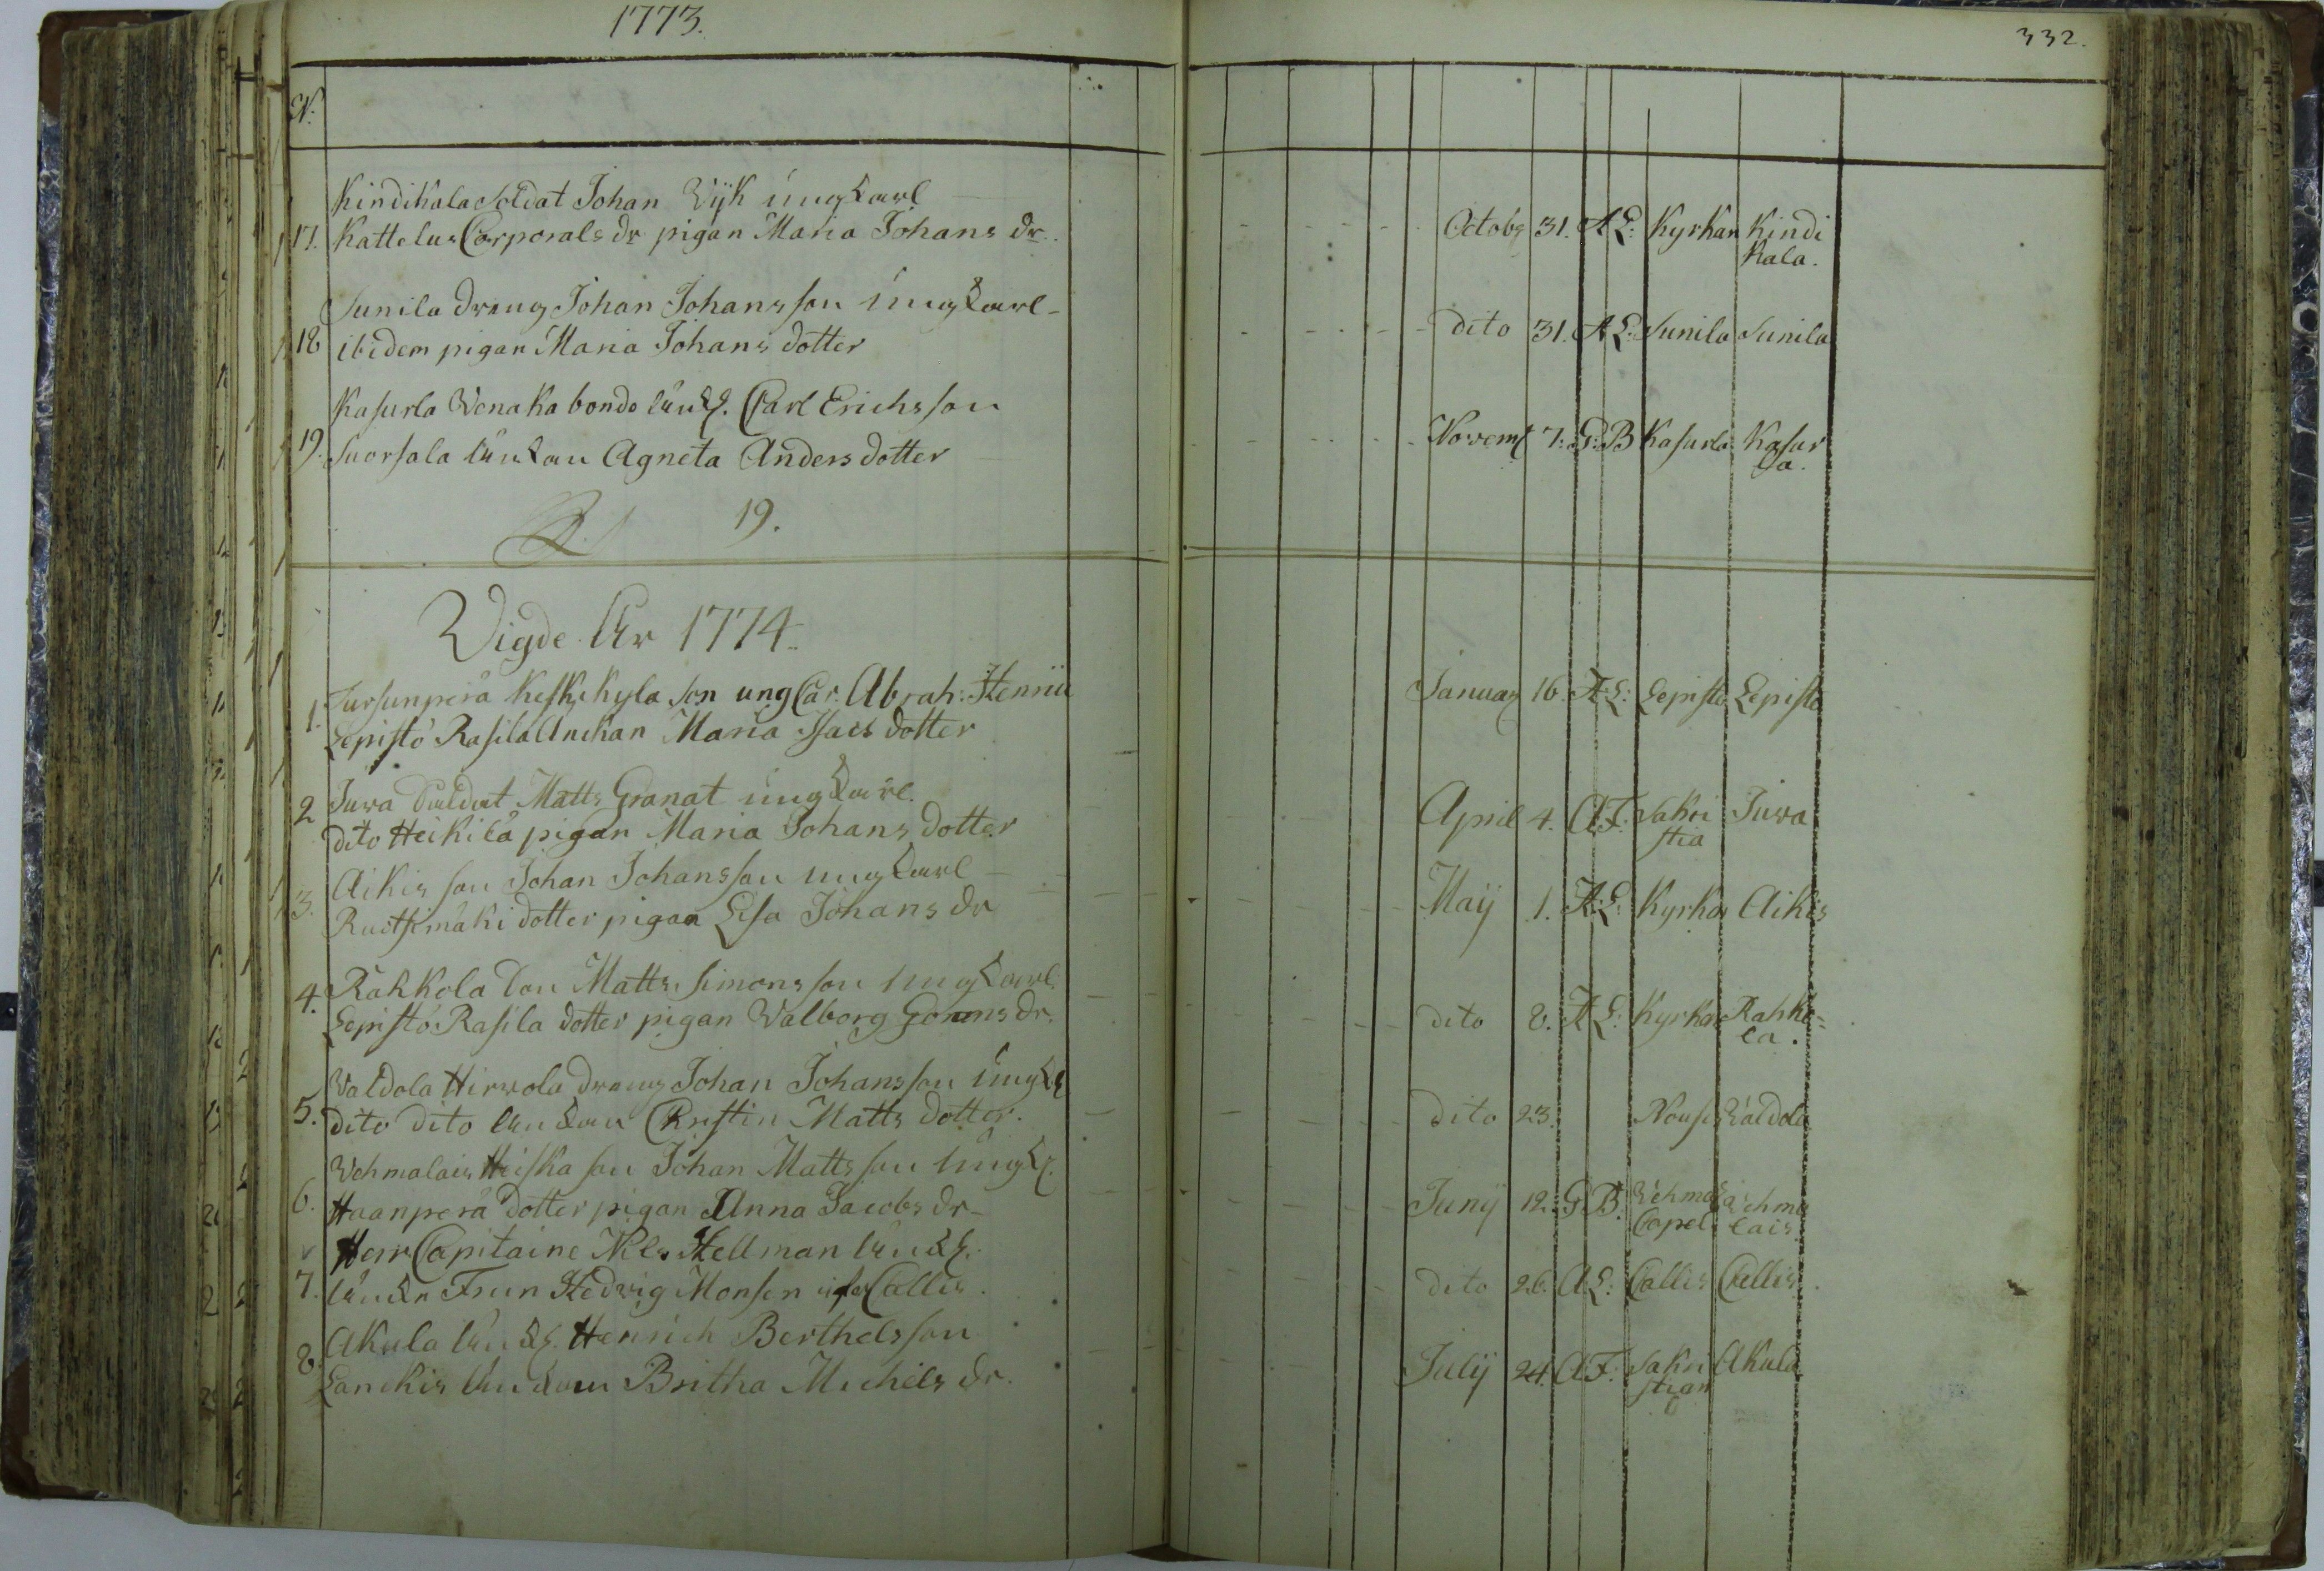 1773.
332.
N:
Kindikala Soldat Johan Wijk ungkarl
17. Kattelus Corporals dr pigan Maria Johans dr. Octobr 31. A L: Kyrkan Kindi
kala.
Sunila dräng Johan Johansson ungkarl
18 ibidem pigan Maria Johans dotter dito 31. A L: Sunila Sunila
Kasurla Wenaka bonde Enkl. Carl Erichsson
19. Suorsala Enkan Agneta Anders dotter Novemb 7. G: B Kasurla Kasur
la.
19.
Vigde År 1774.
1. Tursunperä Keskikyla Son ung Car: Abrah: Henric
Lepistö Rasila Enchan Maria Isacs dotter Januar 16. A: L: Lepistö Lepistö
2 Juva Saldat Matts Granat ungkarl.
dito Heikilä pigan Maria Johans dotter April 4. A: F. Sakri Juva
stia
3. Aikis son Johan Johansson ungkarl
Ruotsmäki dotter pigan Lisa Johans dr Maij 1. A: L: Kyrkan Aikis
4. Rahkola Son Matts Simonsson ungkarl.
Lepistö Rasila dotter pigan Walborg Görans dr. dito 8. A L: Kyrkan Rahko-
la.
Valdola Hirvola dräng Johan Johansson ungk
5. dito dito Enkan Christin Matts dotter. dito 23. Nousis Valdola
Vehmalais Heiska son Johan Mattsson ungk.
6. Haanperä dotter pigan Anna Jacobs dr Junij 12. G B. Vehma Vehma
Capel lais
Herr Capitaine Nils Hellman Enkl.
7. Enkn Frun Hedvig Monsen Callis. dito 26. A L: Callis Callis.
Akula Enkl. Henrich Berthelsson
8. Lanckis Enkan Britha Michels dr. Julij 24. A F: Sakri Akula
stian